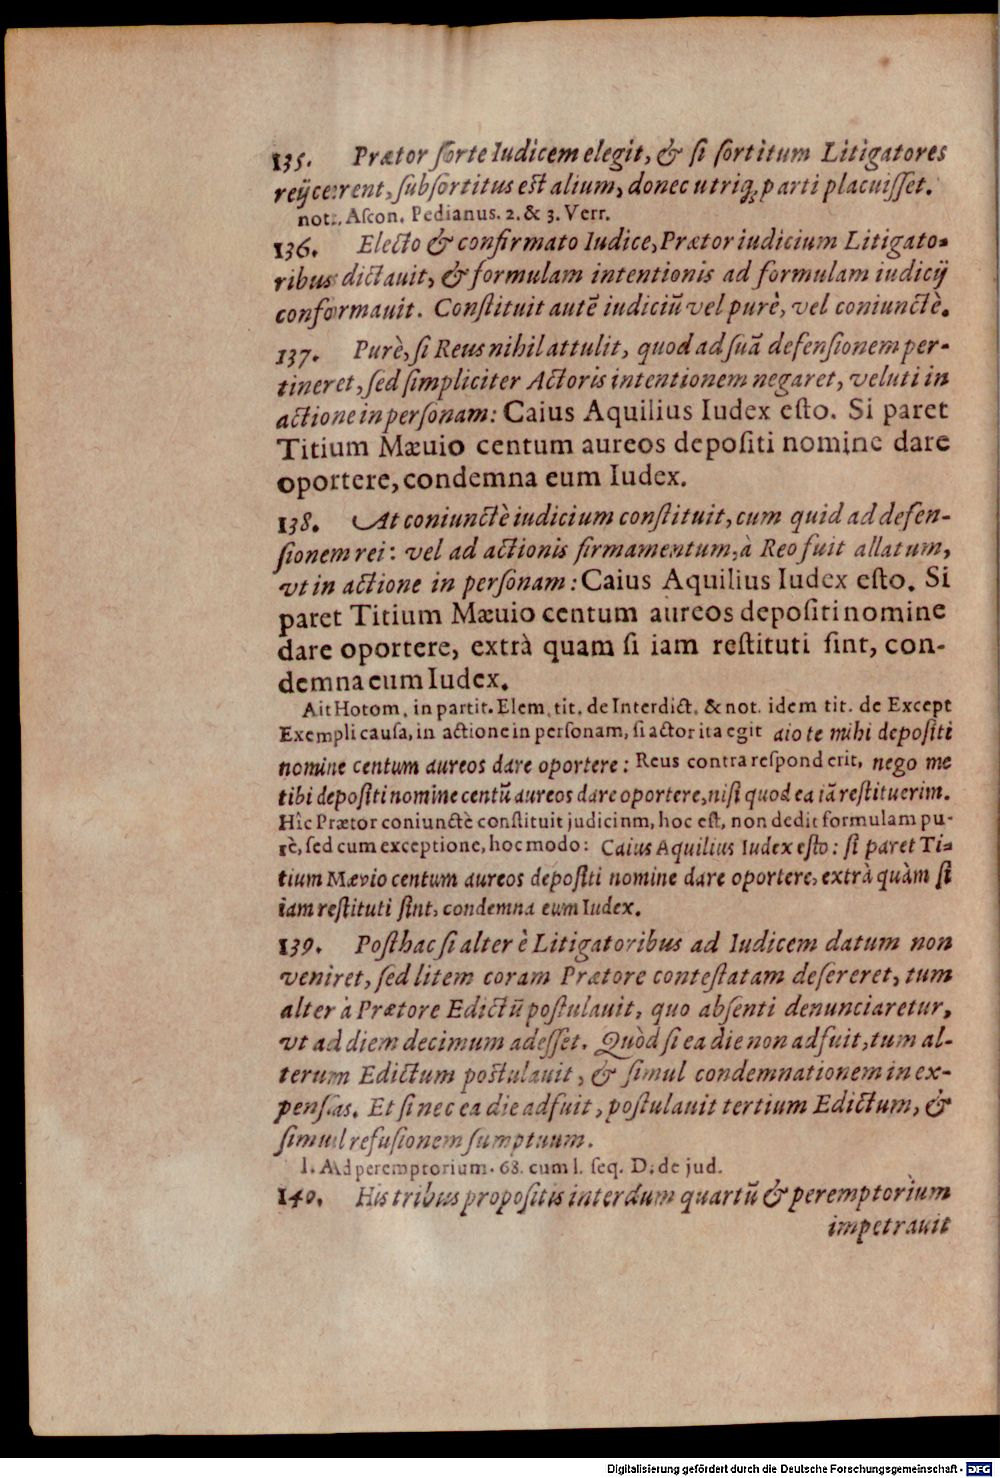 135. Prætor ſorte Iudicem elegit, & ſi ſortitum Litigatores
reijcerent, ſubſortitus eſt alium, donec utriq; parti placuiſſet.
not. Aſcon. Pedianus. 2. & 3. Verr.
136. Electo & confirmato Iudice, Prætor iudicium Litigato-
ribus dictauit, & formulam intentionis ad formulam iudicij
conformauit. Conſtituit autē iudiciū vel purè, vel coniunctè.
137. Purè, ſi Reus nihil attulit, quod ad ſuā defenſionem per-
tineret, ſed ſimpliciter Actoris intentionem negaret, veluti in
actione in perſonam: Caius Aquilius Iudex eſto. Si paret
Titium Mæuio centum aureos depoſiti nomine dare
oportere, condemna eum Iudex.
138. At coniunctè iudicium conſtituit, cum quid ad defen-
ſionem rei: vel ad actionis firmamentum, à Reo fuit allatum,
vt in actione in perſonam: Caius Aquilius Iudex eſto. Si
paret Titium Mæuio centum aureos depoſiti nomine
dare oportere, extrà quam ſi iam reſtituti ſint, con-
demna eum Iudex.
Ait Hotom. in partit. Elem. tit. de Interdict. & not. idem tit. de Except
Exempli cauſa, in actione in perſonam, ſi actor ita egit aio te mihi depoſiti
nomine centum aureos dare oportere: Reus contra reſponderit, nego me
tibi depoſiti nomine centū aureos dare oportere, niſi quod ea iā reſtituerim.
Hîc Prætor coniunctè conſtituit judicinm, hoc eſt, non dedit formulam pu-
rè, ſed cum exceptione, hoc modo: Caius Aquilius Iudex eſto: ſi paret Ti-
tium Mævio centum aureos depoſiti nomine dare oportere, extrà quàm ſi
iam reſtituti ſint, condemna eum Iudex.
139. Poſthac ſi alter è Litigatoribus ad Iudicem datum non
veniret, ſed litem coram Prætore conteſtatam deſereret, tum
alter à Prætore Edictū poſtulauit, quo abſenti denunciaretur,
vt ad diem decimum adeſſet. Quòd ſi ea die non adfuit, tum al-
terum Edictum poſtulauit, & ſimul condemnationem in ex-
penſas. Et ſi nec ea die adfuit, poſtulauit tertium Edictum, &
ſimul refuſionem ſumptuum.
l. Ad peremptorium. 68. cum l. ſeq. D. de jud.
140. His tribus propoſitis interdum quartū & peremptorium
impetrauit
Digitalisierung gefördert durch die Deutsche Forschungsgemeinschaft - DFG